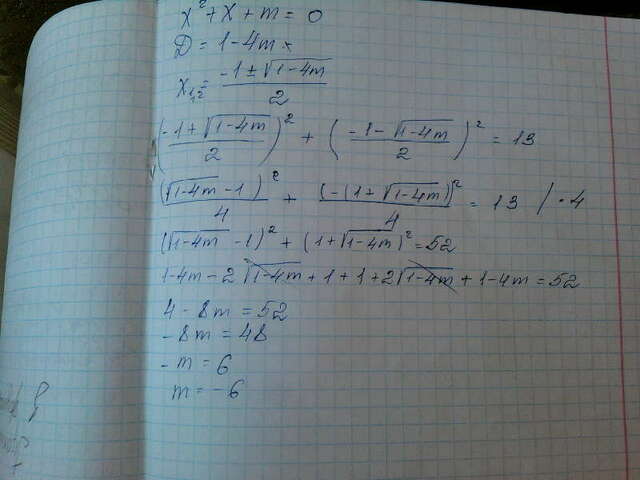 x² + x + m = 0
D = 1 - 4m
x₁,₂ = (-1 ± √(1-4m)) / 2
((-1 + √(1-4m)) / 2)² + ((-1 - √(1-4m)) / 2)² = 13
(√(1-4m) - 1)² / 4 + (-(1 + √(1-4m)))² / 4 = 13 / · 4
(√(1-4m) - 1)² + (1 + √(1-4m))² = 52
1-4m - 2√(1-4m) + 1 + 1 + 2√(1-4m) + 1-4m = 52
4 - 8m = 52
-8m = 48
-m = 6
m = -6